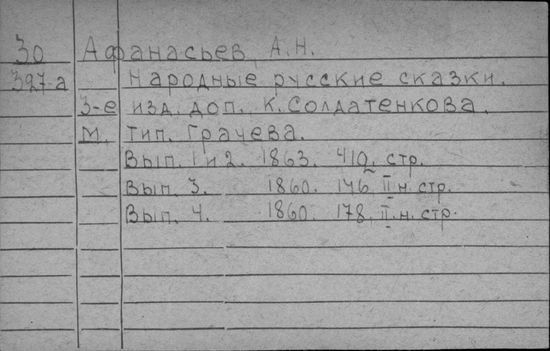 30 Афанасьев, А.Н.
327-а Народные русские сказки.
3-е изд. доп. К. Солдатенкова.
М. Тип. Грачева.
Вып. 1 и 2. 1863. 410, стр.
Вып. 3. 1860. 146, II н. стр.
Вып. 4. 1860. 178, II н. стр.